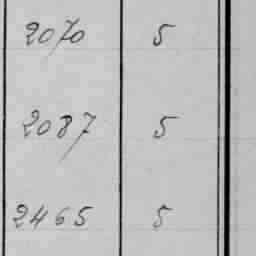 2070 5
2087 5
2465 5